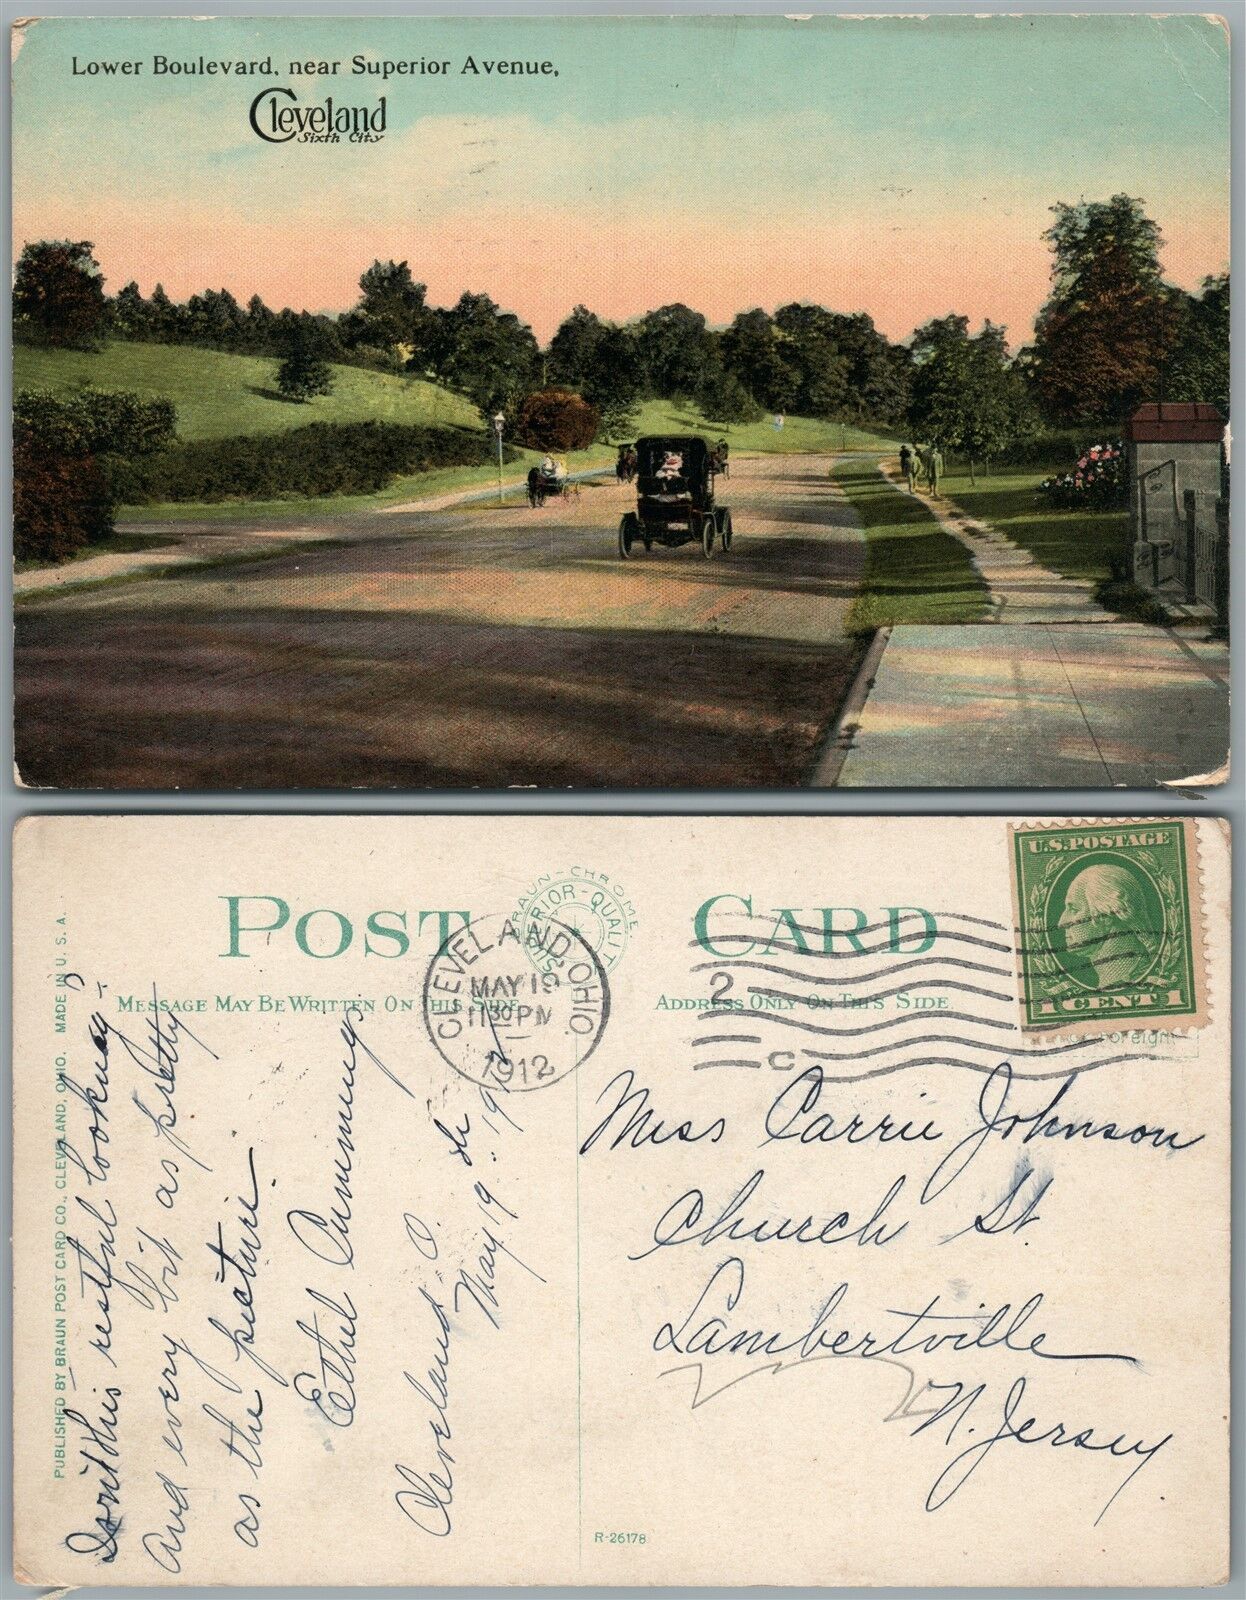 Lower Boulevard, near Superior Avenue,
Cleveland
Sixth City
POST CARD
BRAUN-CHROME
SUPERIOR-QUALITY
MESSAGE MAY BE WRITTEN ON THIS SIDE
ADDRESS ONLY ON THIS SIDE
U.S. POSTAGE
1 CENT 1
Foreign
CLEVELAND, OHIO.
MAY 19
11 30 PM
1912
2
C
PUBLISHED BY BRAUN POST CARD CO., CLEVELAND, OHIO. MADE IN U. S. A.
Isn't this restful looking -
And every bit as pretty
as the picture.
Ethel Cummings
Cleveland O.
May 19. 1912
Miss Carrie Johnson
Church St.
Lambertville
N. Jersey
R-26178